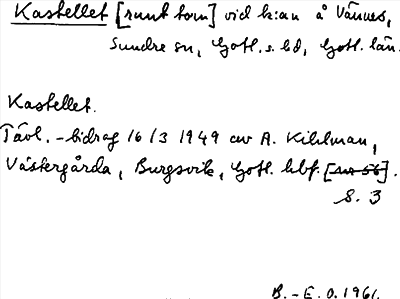 Kastellet [runt torn] vid k:an å Vännes,
Sundre sn, Gotl. s. hd, Gotl. län.
Kastellet.
Tävl.-bidrag 16/3 1949 av A. Kihlman,
Västergårda, Burgsvik, Gotl. hbf.
S. 3
B.-E. O. 1961.